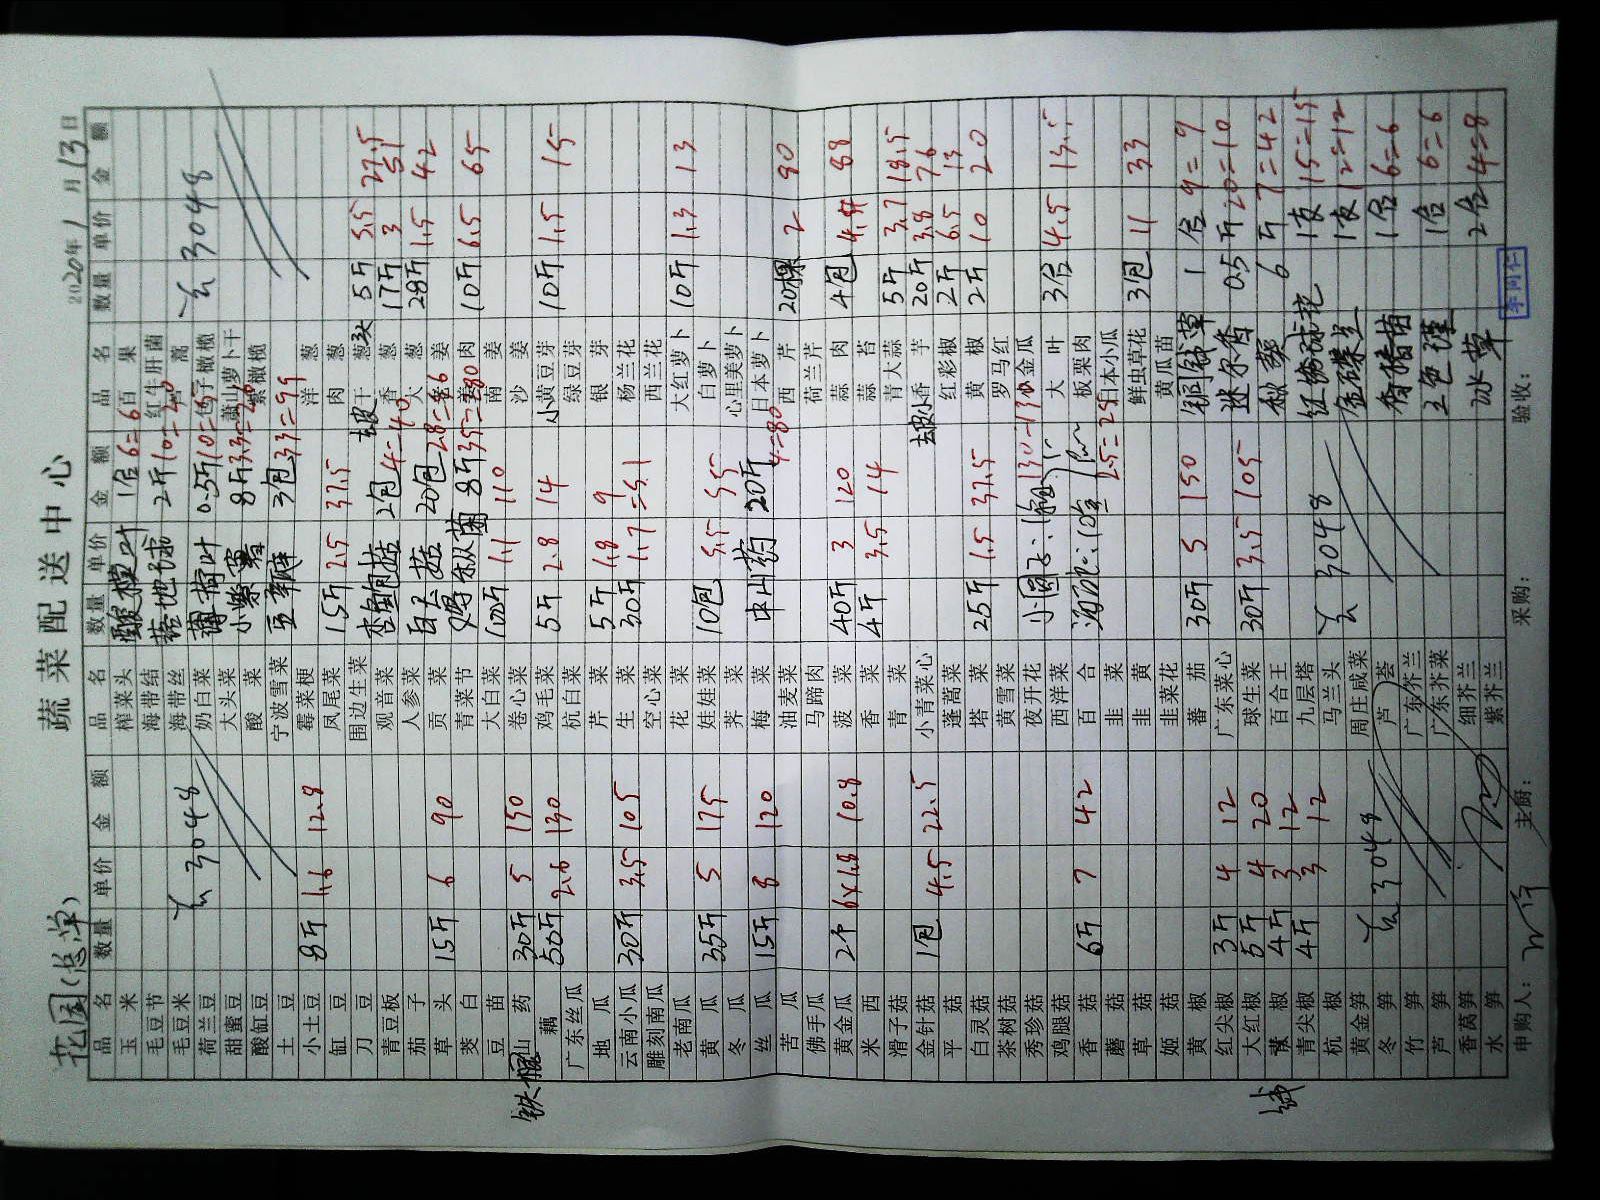 花园(总单)
蔬菜配送中心
2020年1月13日
品名 数量 单价 金额 品名 数量 单价 金额 品名 数量 单价 金额
玉米
毛豆节
毛豆米
荷兰豆
甜蜜豆
酸缸豆
土豆
小土豆 8斤 1.6 12.8
缸豆
刀豆
青豆板
茄子
草头 15斤 6 90
茭白
豆苗
铁棍山药 30斤 5 150
藕 50斤 2.6 130
广东丝瓜
地瓜
云南小瓜 30斤 3.5 105
雕刻南瓜
老南瓜
黄瓜 35斤 5 175
冬瓜
丝瓜 15斤 8 120
苦瓜
佛手瓜
黄金瓜 2个 6×1.8 10.8
米西
滑子菇
金针菇 1包 4.5 22.5
平菇
白灵菇
茶树菇
秀珍菇
鸡腿菇
香菇 6斤 7 42
蘑菇
草菇
姬菇
黄椒
红尖椒 3斤 4 12
大红椒 5斤 4 20
椒 4斤 3 12
青尖椒 4斤 3 12
杭椒
黄金笋
冬笋
竹笋
芦笋
香莴笋
水笋
3048
榨菜头
海带结
海带丝
奶白菜
大头菜
酸菜
宁波雪菜
霉菜梗
凤尾菜 15斤 2.5 37.5
围边生菜
观音菜
人参菜
贡菜
青菜节
大白菜 100斤 1.1 110
卷心菜
鸡毛菜 5斤 2.8 14
杭白菜
芹菜 5斤 1.8 9
生菜 30斤 1.7=51
空心菜
花菜
娃娃菜 10包 5.5 55
荠菜
梅菜 中山药 20斤 4=80
油麦菜
马蹄肉
菠菜 40斤 3 120
香菜 4斤 3.5 14
青菜
小青菜心
蓬蒿菜
塔菜 25斤 1.5 37.5
黄雪菜
夜开花
西洋菜
百合
韭菜
韭黄
韭菜花
蕃茄 30斤 5 150
广东菜心
球生菜 30斤 3.5 105
百合王
九层塔
马兰头
周庄咸菜
芦荟
广东芥兰
广东芥菜
细芥兰
紫芥兰
3048
酸模叶 1合 6=6
2斤 10=20
薄荷叶 0.5斤
8斤 3.3
3包 33=99
杏鲍菇 2包 4=40
白玉菇 20包 2.8
8斤 35=280
小圆子
2.5=25
百果
红牛肝菌
蒿
橄榄
萧山萝卜干
紫橄榄
洋葱
肉葱
干葱头 5斤 5.5 27.5
香葱 17斤 3 51
大葱 28斤 1.5 42
姜
姜肉 10斤 6.5 65
南姜
沙姜
小黄豆芽 10斤 1.5 15
绿豆芽
银芽
杨兰花
西兰花
大红萝卜 10斤 1.3 13
白萝卜
心里美萝卜
日本萝卜
西芹 20棵 2
荷兰芹
蒜肉 4包 88
蒜苔
青大蒜 5斤 3.7 18.5
香芋 20斤 3.8 76
红彩椒 2斤 6.5 13
黄椒 2斤 10 20
罗马红
小金瓜
大叶 3合 4.5 13.5
板栗肉
日本小瓜
鲜虫草花 3包 11 33
黄瓜苗
铜钱草 1合 9=9
迷尔香 0.5斤 20=10
秋葵 6斤 7=42
红绣球花 1支 15=15
金碟兰 1支 12=12
1合 6=6
三色堇 1合 6=6
冰草 2合 4=8
3048
申购人：
主厨：
采购：
验收：